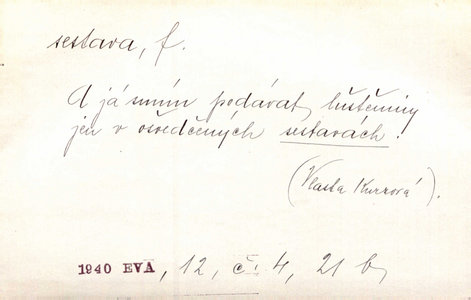 sestava, f.
A já smím podávat luštěniny
jen v osvědčených sestavách.
(Vlasta Kurzová).
1940 EVA, 12, č. 4, 21 b,